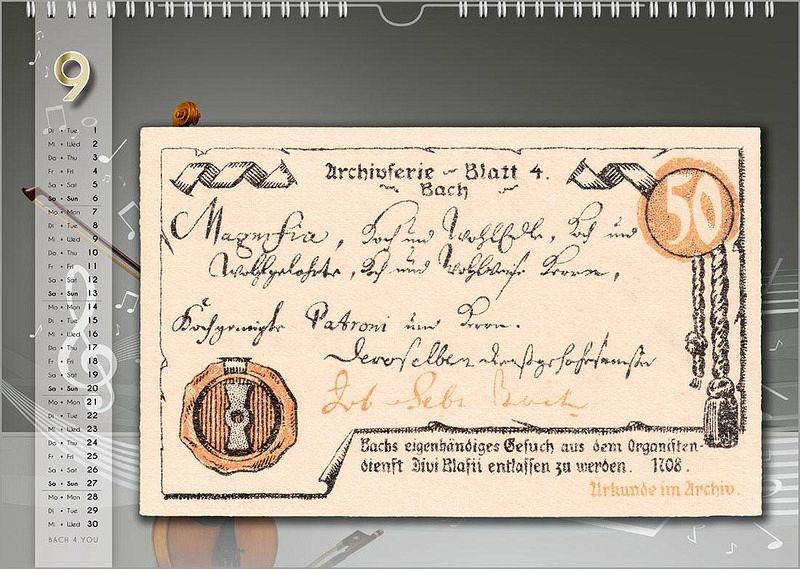 9
Di • Tue 1
Mi • Wed 2
Do • Thu 3
Fr • Fri 4
Sa • Sat 5
So • Sun 6
Mo • Mon 7
Di • Tue 8
Mi • Wed 9
Do • Thu 10
Fr • Fri 11
Sa • Sat 12
So • Sun 13
Mo • Mon 14
Di • Tue 15
Mi • Wed 16
Do • Thu 17
Fr • Fri 18
Sa • Sat 19
So • Sun 20
Mo • Mon 21
Di • Tue 22
Mi • Wed 23
Do • Thu 24
Fr • Fri 25
Sa • Sat 26
So • Sun 27
Mo • Mon 28
Di • Tue 29
Mi • Wed 30
BACH 4 YOU
Archivserie – Blatt 4.
Bach
50
Magnifici, Hoch und WohlEdle, Hoch und
Wohlgelahrte, Hoch und Wohlweise Herren,
Hochgeneigte Patroni und Herrn.
Deroselben
Joh Sebt Bach
Bachs eigenhändiges Gesuch aus dem Organisten-
dienst Divi Blasii entlassen zu werden. 1708.
Urkunde im Archiv.